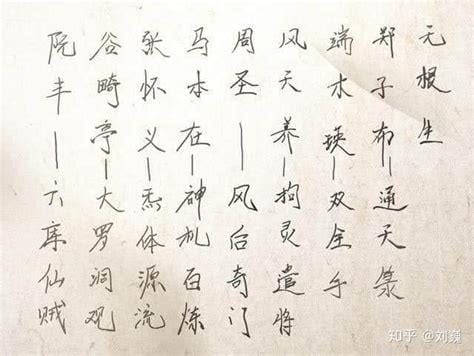 无根生
郑子布—通天箓
端木瑛—双全手
风天养—拘灵遣将
周圣—风后奇门
马本在—神机百炼
张怀义—炁体源流
谷畸亭—大罗洞观
阮丰—六库仙贼
知乎 @刘巍